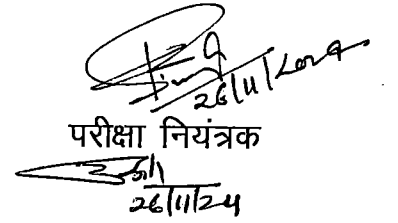 26/11/2024
परीक्षा नियंत्रक
26/11/24